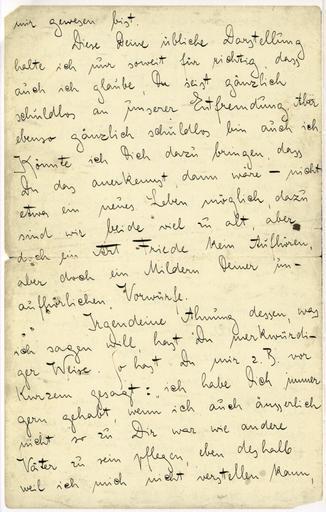 mir gewesen bist.
Diese Deine übliche Darstellung
halte ich nur soweit für richtig, dass
auch ich glaube, Du seist gänzlich
schuldlos an unserer Entfremdung. Aber
ebenso gänzlich schuldlos bin auch ich.
Könnte ich Dich dazu bringen, dass
Du das anerkennst, dann wäre – nicht
etwa ein neues Leben möglich, dazu
sind wir beide viel zu alt, aber
doch ein Art Friede, kein Aufhören,
aber doch ein Mildern Deiner un-
aufhörlichen Vorwürfe.
Irgendeine Ahnung dessen, was
ich sagen will, hast Du merkwürdi-
ger Weise. So hast Du mir z.B. vor
Kurzem gesagt: „ich habe Dich immer
gern gehabt, wenn ich auch äusserlich
nicht so zu Dir war wie andere
Väter zu sein pflegen, eben deshalb
weil ich mich nicht verstellen kann,